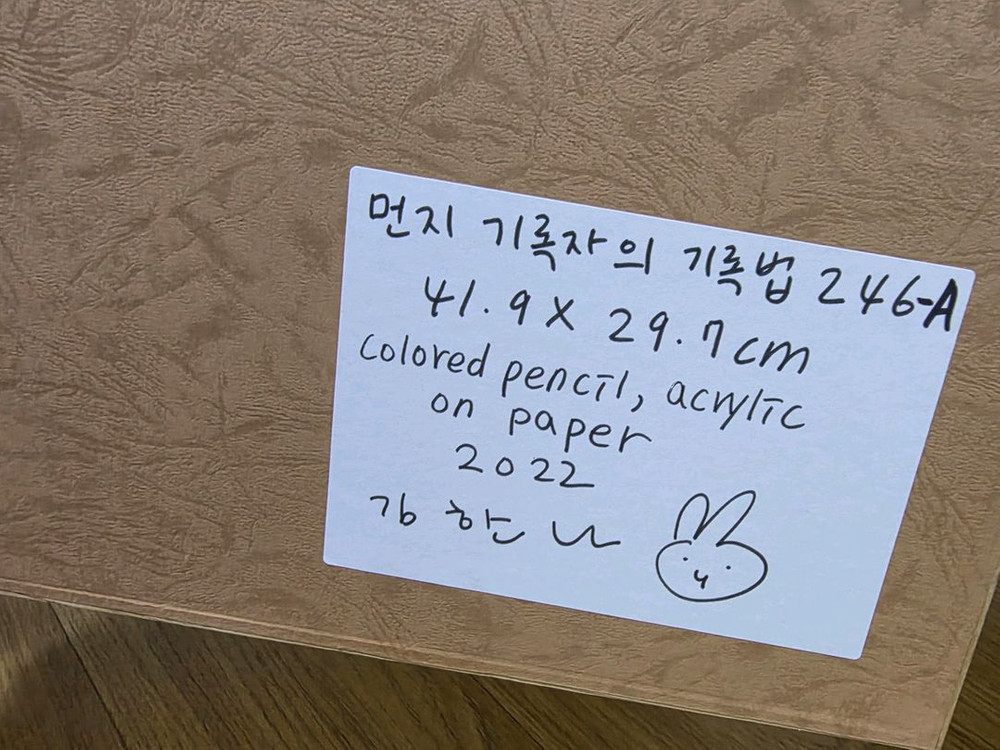 먼지 기록자의 기록법 246-A
41.9 x 29.7cm
colored pencil, acrylic
on paper
2022
김한나